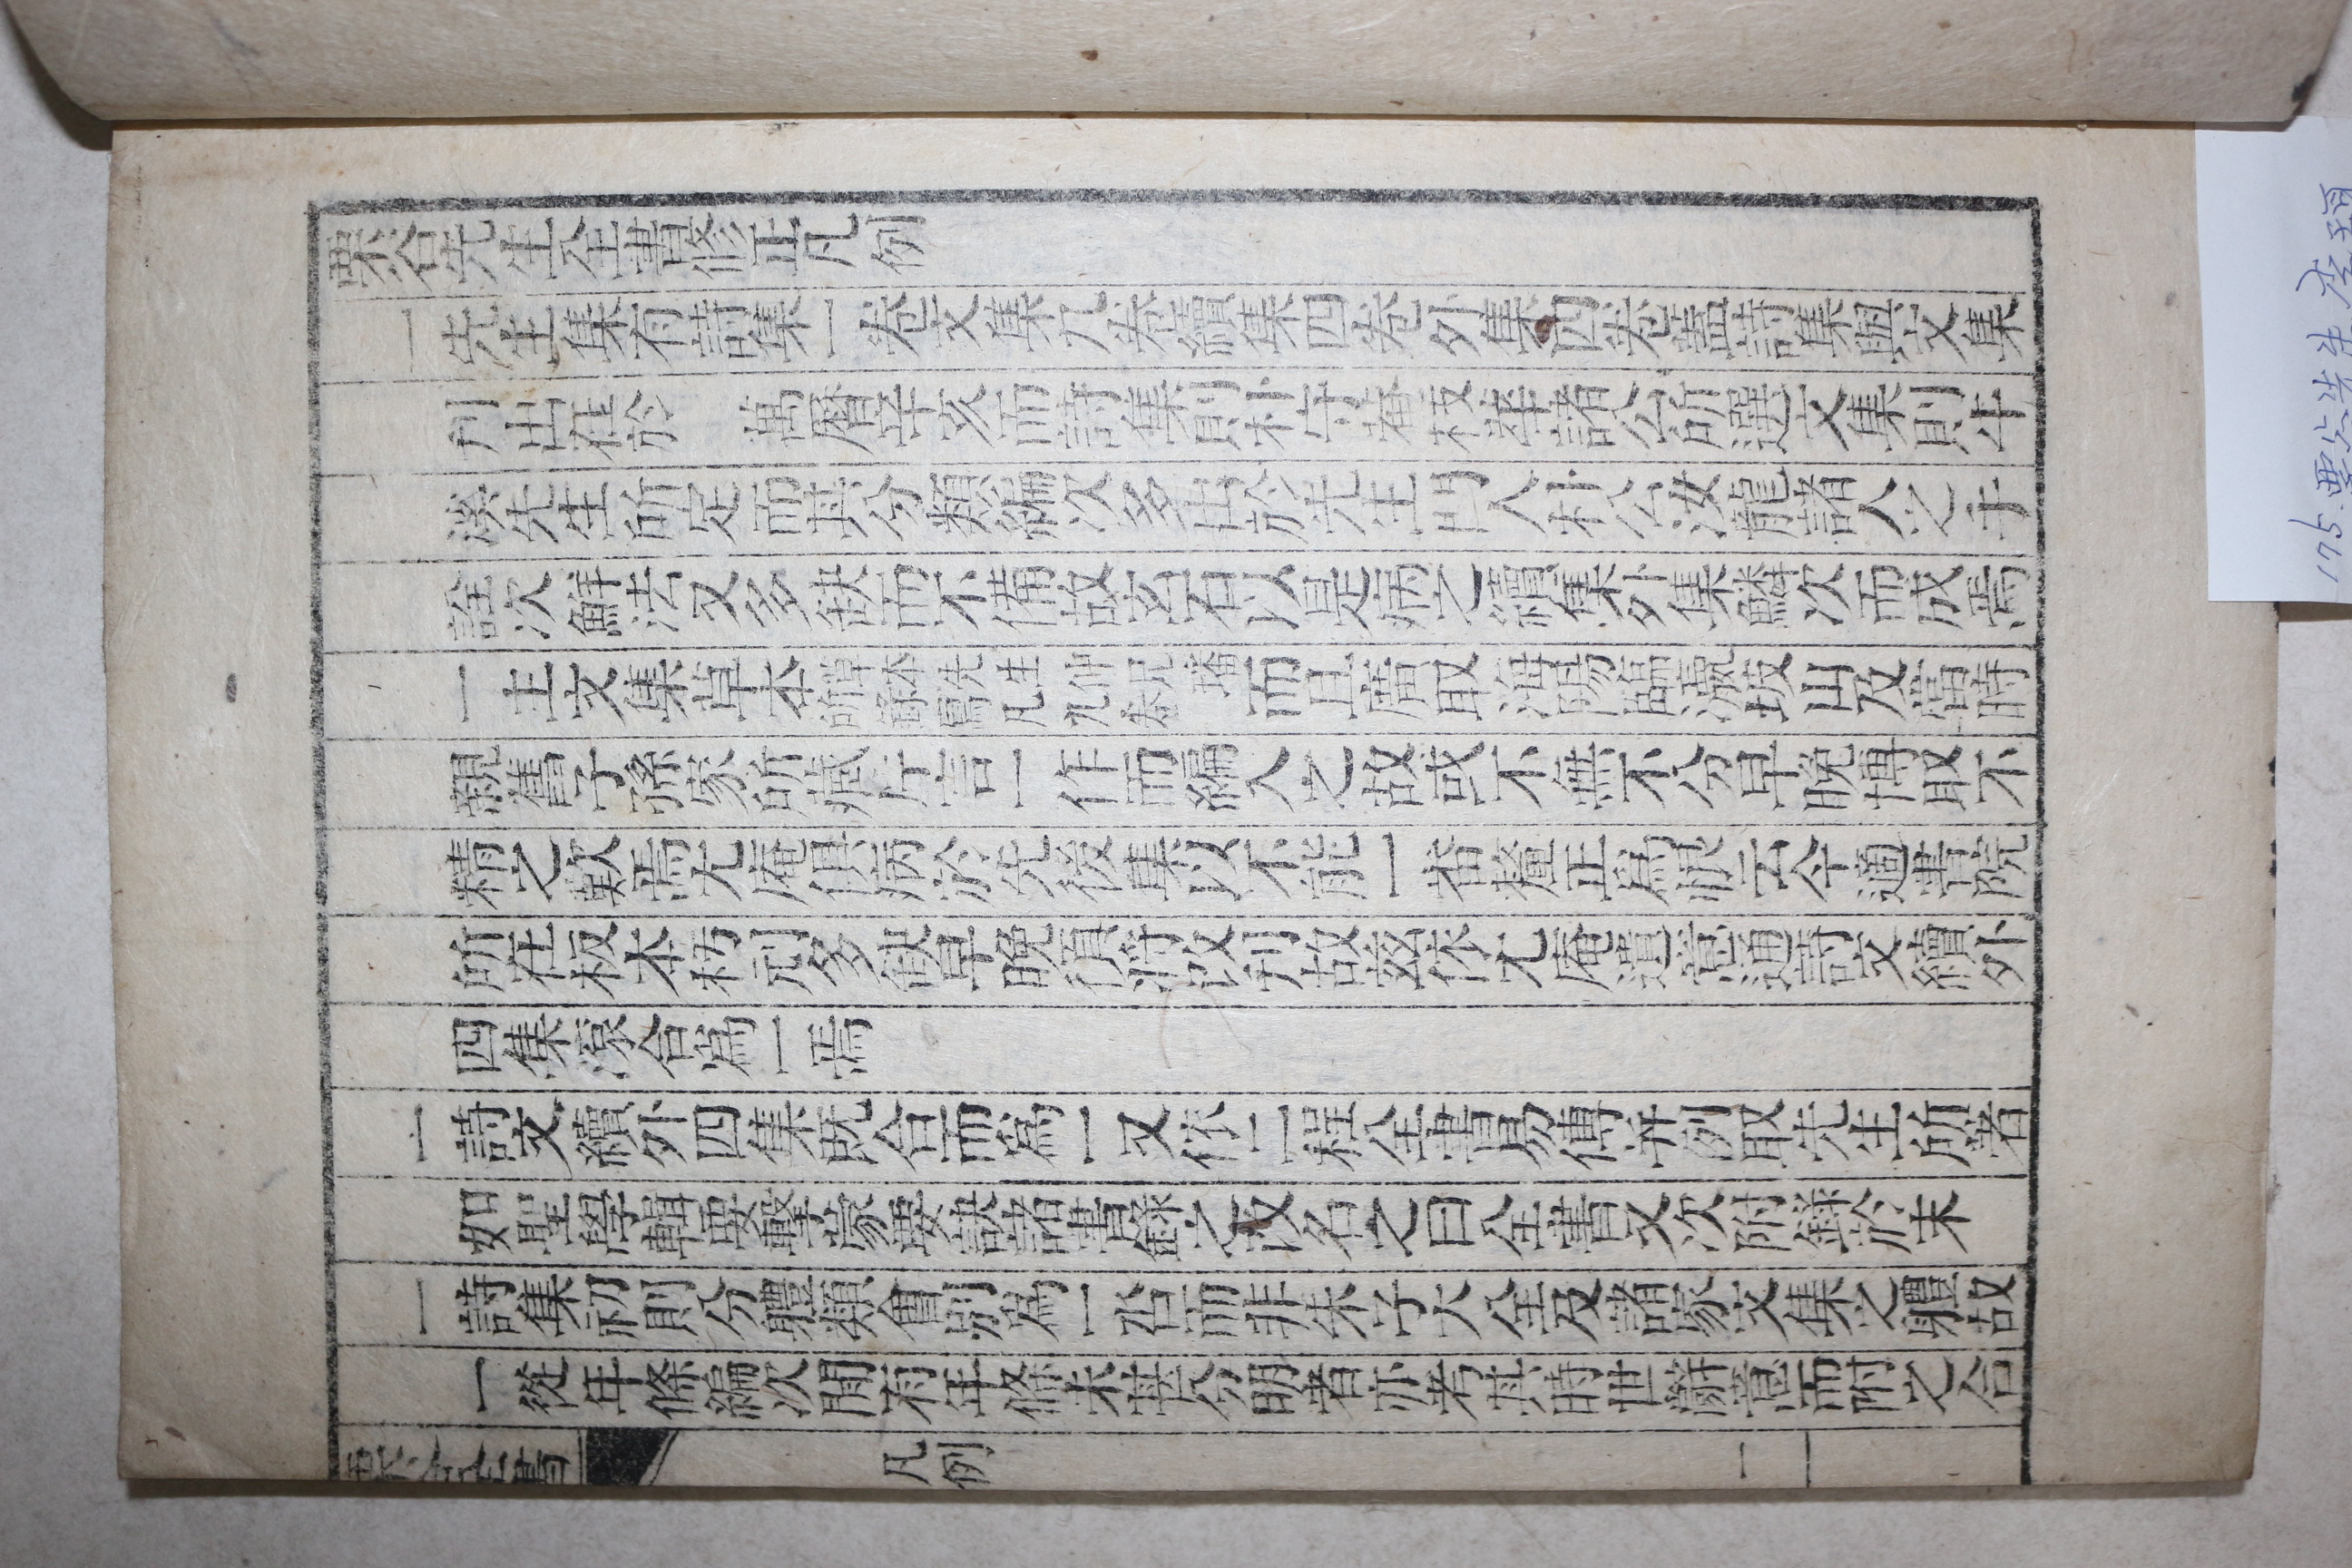 栗谷先生全書修正凡例
一先生集有詩集一卷文集九卷續集四卷外集四卷蓋詩集與文集
刊出在於 萬曆辛亥而詩集則朴守菴枝華諸公所選文集則牛
溪先生所定而其分類編次多出於先生門人朴公汝龍諸人之手
詮次鮮法又多缺而不備故玄石以是病之續集外集鱗次而成焉
一主文集草本草本先生仲兄璠所餘寫凡九卷而且廣取海陽臨瀛坡山及當時
親舊子孫家所藏片言一作而編入之故或不無不分早晩博取不
精之歎焉尤庵俱病於先後集以不能一番釐正爲恨云今適書院
所在板本朽刓多觖早晩須將改刊故玆依尤庵遺意通詩文續外
四集滾合爲一焉
一詩文續外四集旣合而爲一又依二程全書易傳并例取先生所著
如聖學輯要擊蒙要訣諸書錄之改名之曰全書又次附錄於末
一詩集初則分體類會別爲一而非朱子大全及諸家文集之體故
一從年條編次間有年條未甚分明者亦考其時世辭意而附之合
栗谷全書 凡例 一
175 栗谷